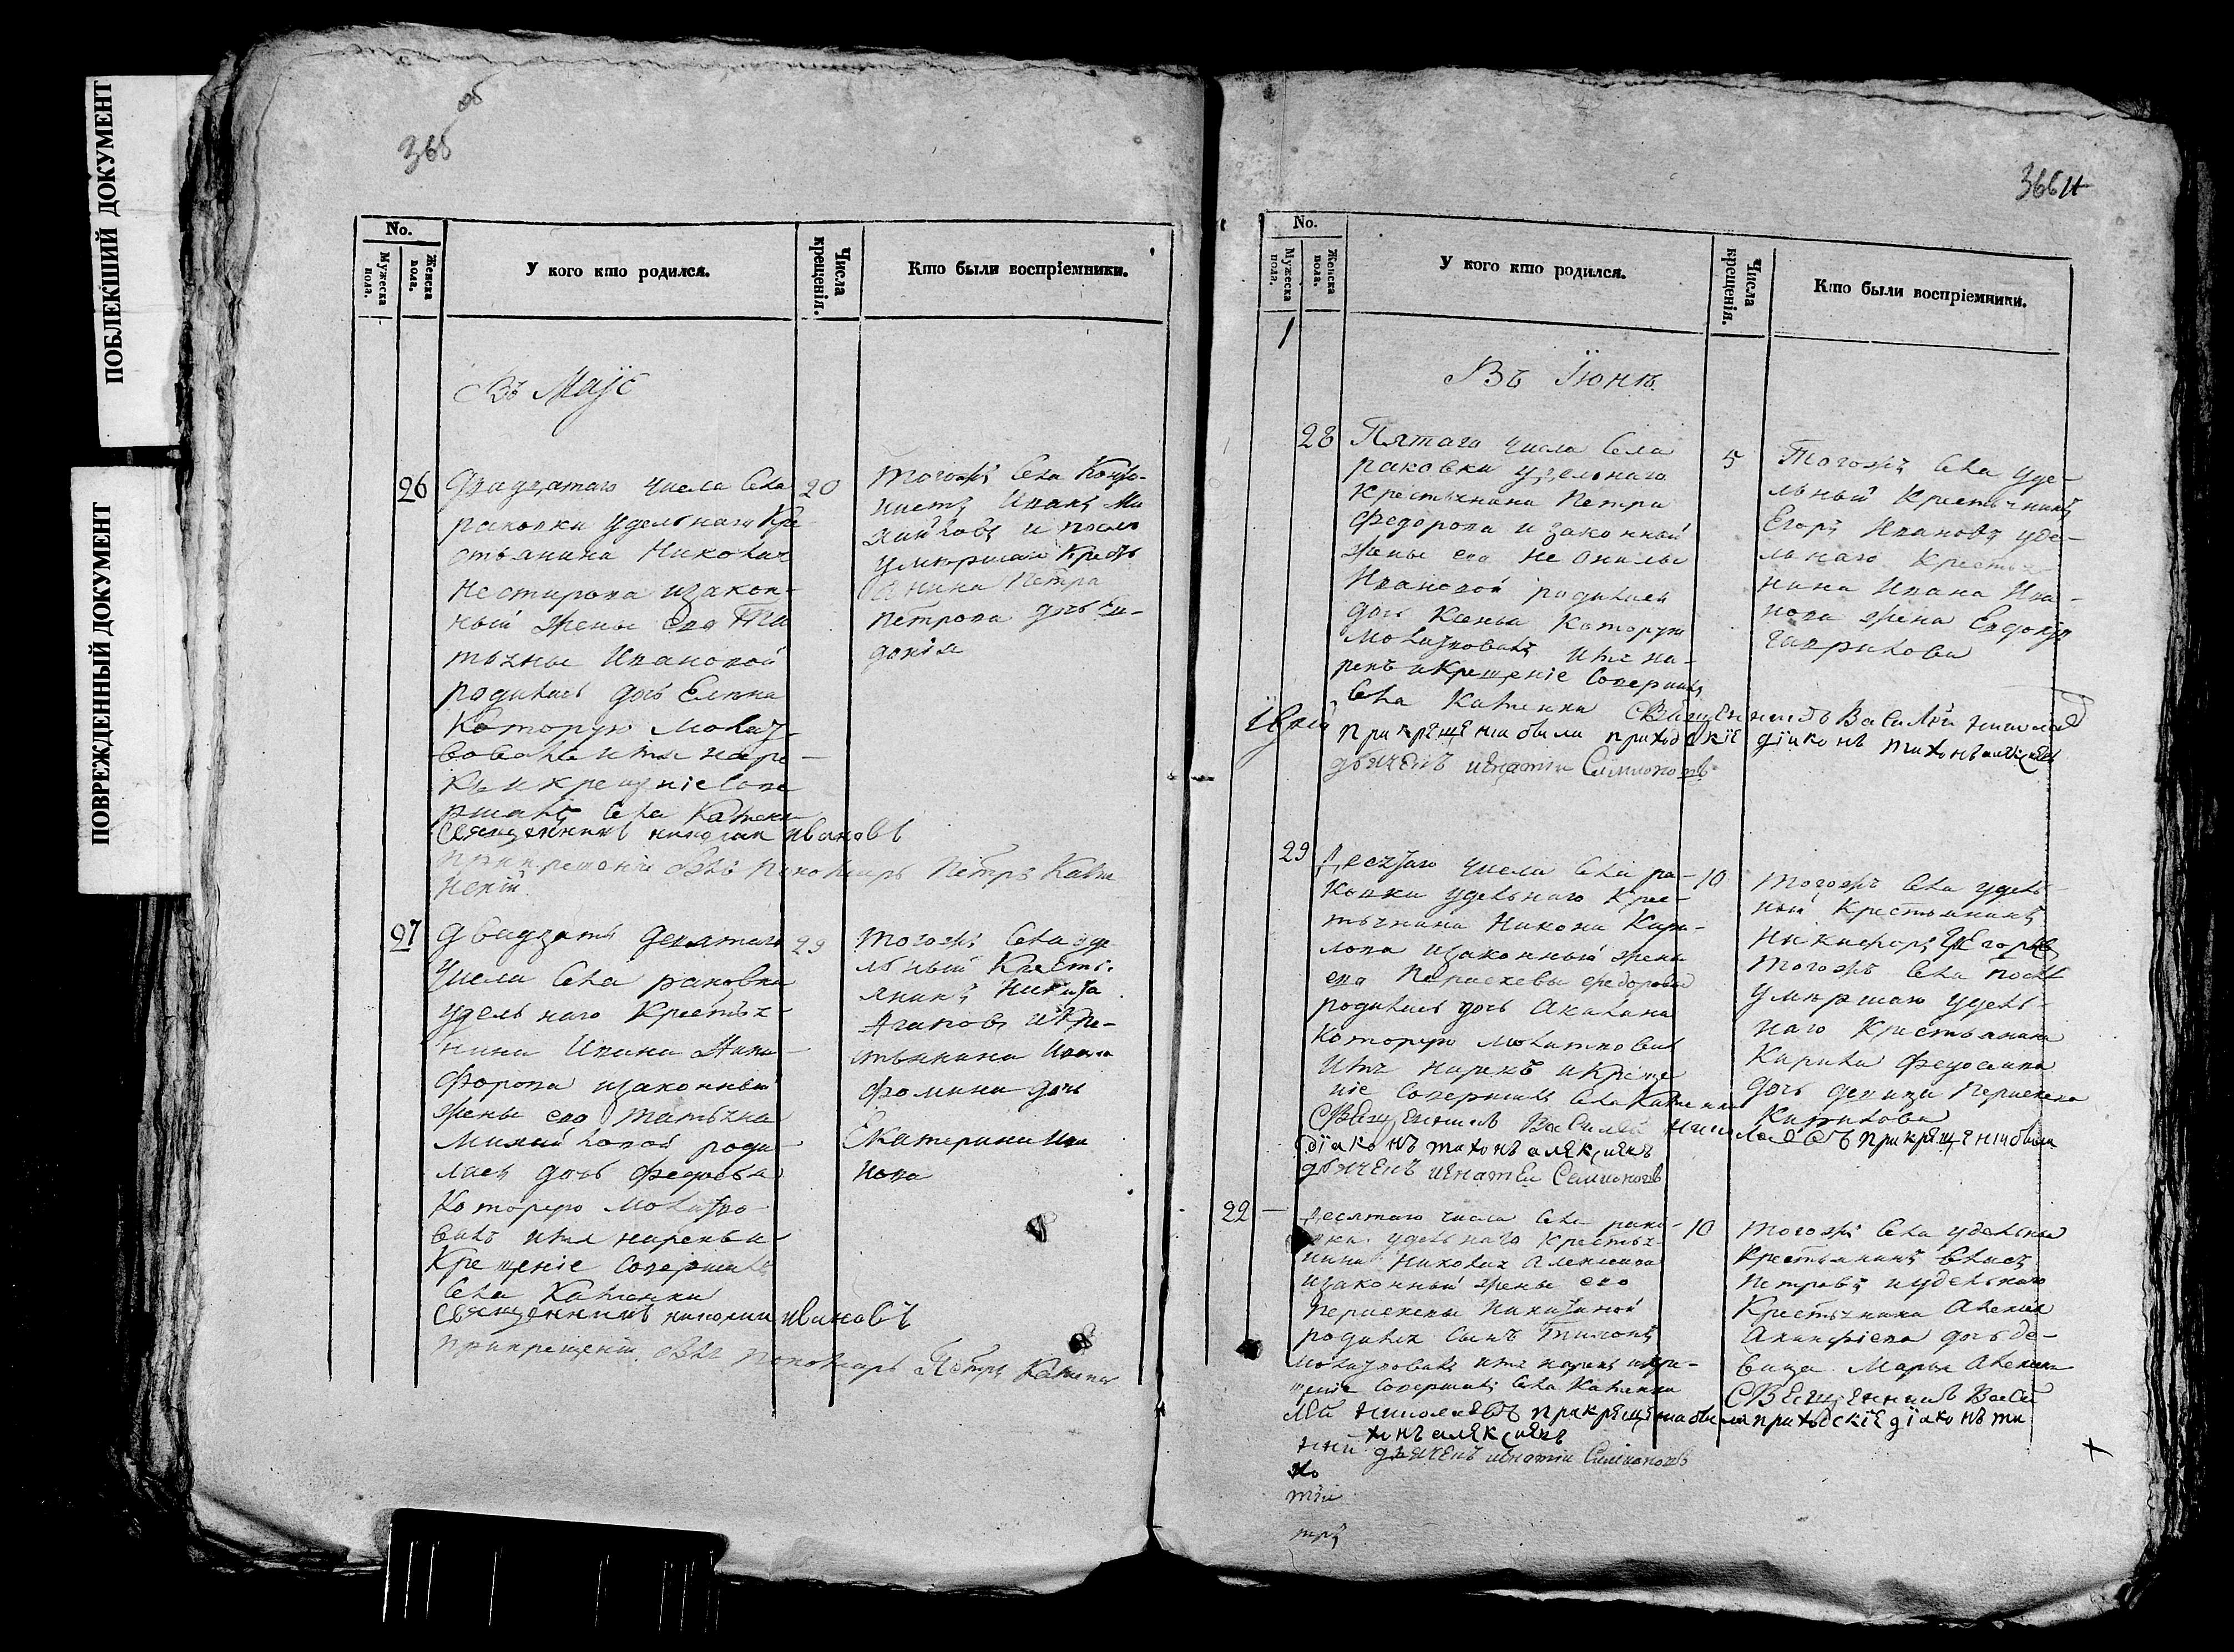 ПОБЛЕКШИЙ ДОКУМЕНТ
ПОВРЕЖДЕННЫЙ ДОКУМЕНТ
об
365
No.
Мужеска пола.
Женска пола.
У кого кто родился.
Числа крещенія.
Кто были воспріемники.
Въ Маіе
26
Двадцатаго числа села
раковки удельнаго Кре
стьянина Николая
Нестирова изакон-
ный жены его Тит
тьяны Ивановой
родилась дочь Елена
Которую молит-
вовала итя наре-
къ и крещніе Сове
ршалъ села Каменки
священникъ николаи ивановъ
при крещеніи былъ пономарь Петръ Каме
20
тогожъ села
Иванъ Ми
хайловъ и после
умершаго Кресть
янина Петра
Петрова дочь Ев-
докія
27
Двадцать девятаго
числа села раковки
удельнаго Крестья-
нина Ивана Ники-
форова изаконный
жены его татьяна
Михайловой роди
лася дочь Федосья
Которую молитво
валъ итя нарекъ и
Крещеніе Совершалъ
села Каменки
священникъ николаи ивановъ
прикрещеніи былъ пономарь Петръ Камен
29
тогожъ села уде
льный Кресть-
янинъ Никита
Агаповъ и Кре-
стьянина Ивана
Фомина дочь
Екатерина Ива
нова
366
No.
Мужеска пола.
Женска пола.
У кого кто родился.
Числа крещенія.
Кто были воспріемники.
Въ Іюнѣ
28
Пятаго числа Села
раковки удельнаго
Крестьянина Петра
Федорова и законный
жены его Неонилы
Ивановой родилася
дочь Ксенья Которую
Молитвовалъ итя на-
рекъ икрещеніе Совершалъ
села Каменки священникъ Василей николаевъ
прикрещеніи были приходскіе діаконъ тихонъ алексіевъ
дьячекъ игнатіи Симионовъ
5
Тогожъ села уде-
льный Крестьянинъ
Егоръ Ивановъ уде-
льнаго Крестья
нина Ивана Ива-
нова жена Евдокія
гаврилова
29
Десятаго числа села ра-
ковки удельнаго Крес-
тьянина Никона Кири-
лова изаконный жены
его Перасковьи Федоровы
родилась дочь Акилина
Которую молитвовалъ
Итя нарекъ и Креще
ніе Совершалъ села Каменки
священникъ Василей николаевъ прикрещеніи были
діаконъ тихонъ алексиевъ
дьячекъ игнатеи Симионовъ
10
тогожъ села удель-
ный Крестьянинъ
Никифоръ Егоровъ
тогожъ села после
умершаго удель-
наго Крестьянина
Кирила Федосиива
дочь девица Перасковья
Кирилова
22
Десятаго числа села рако-
вки удельнаго Крестья-
нина Николая Алексиива
изаконный жены его
Перасковьи Никитиной
родился сынъ Тихонъ
Молитвовалъ итя нарекъ икре-
щеніе Совершалъ села Каменки
лей николаевъ прикрещеніи были приходскіе діаконъ ти
хонъ алексиевъ
дьячекъ игнатіи Симионовъ
10
тогожъ села удельный
Крестьянинъ Власъ
Петровъ иудельнаго
Крестьянина Алексия
дочь де-
вица Марья Алексиива
священникъ Васи